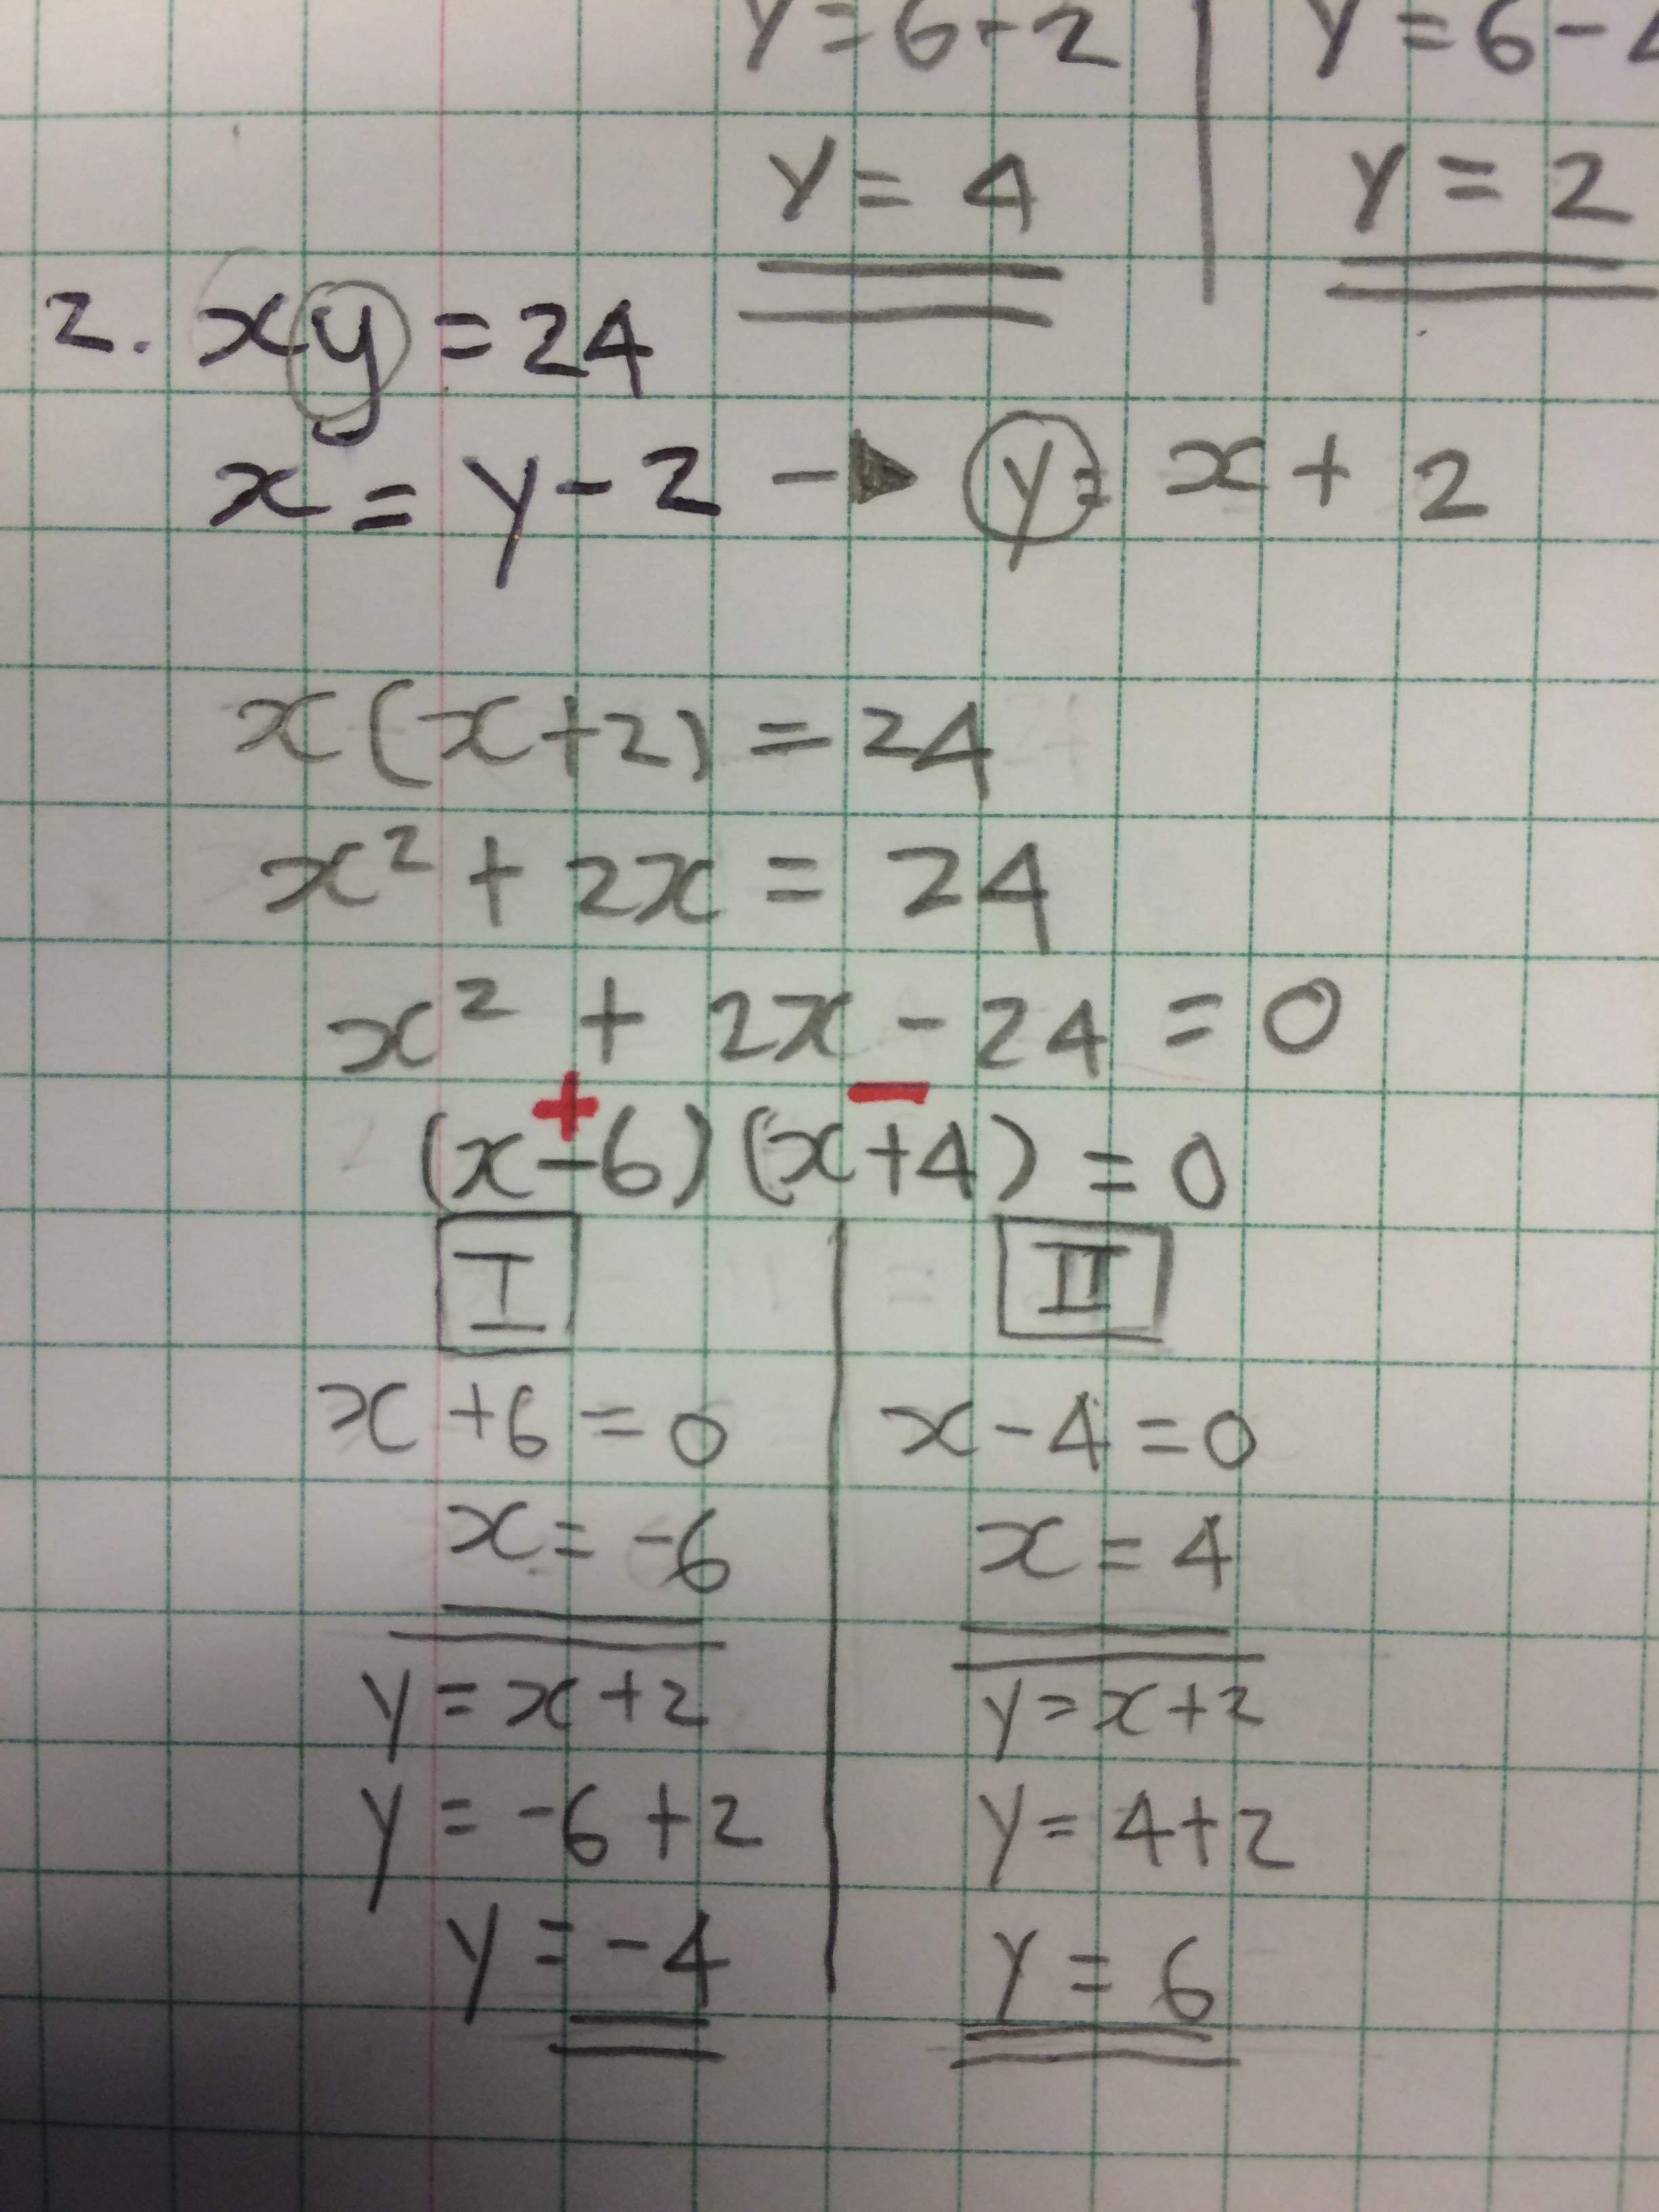 y = 6 - 2 | y = 6 -
y = 4 | y = 2
2. xy = 24
x = y - 2 -▶ y = x + 2
x(x+2) = 24
x² + 2x = 24
x² + 2x - 24 = 0
+ −
(x-6)(x+4) = 0
I | II
x + 6 = 0 | x - 4 = 0
x = -6 | x = 4
y = x + 2 | y = x + 2
y = -6 + 2 | y = 4 + 2
y = -4 | y = 6